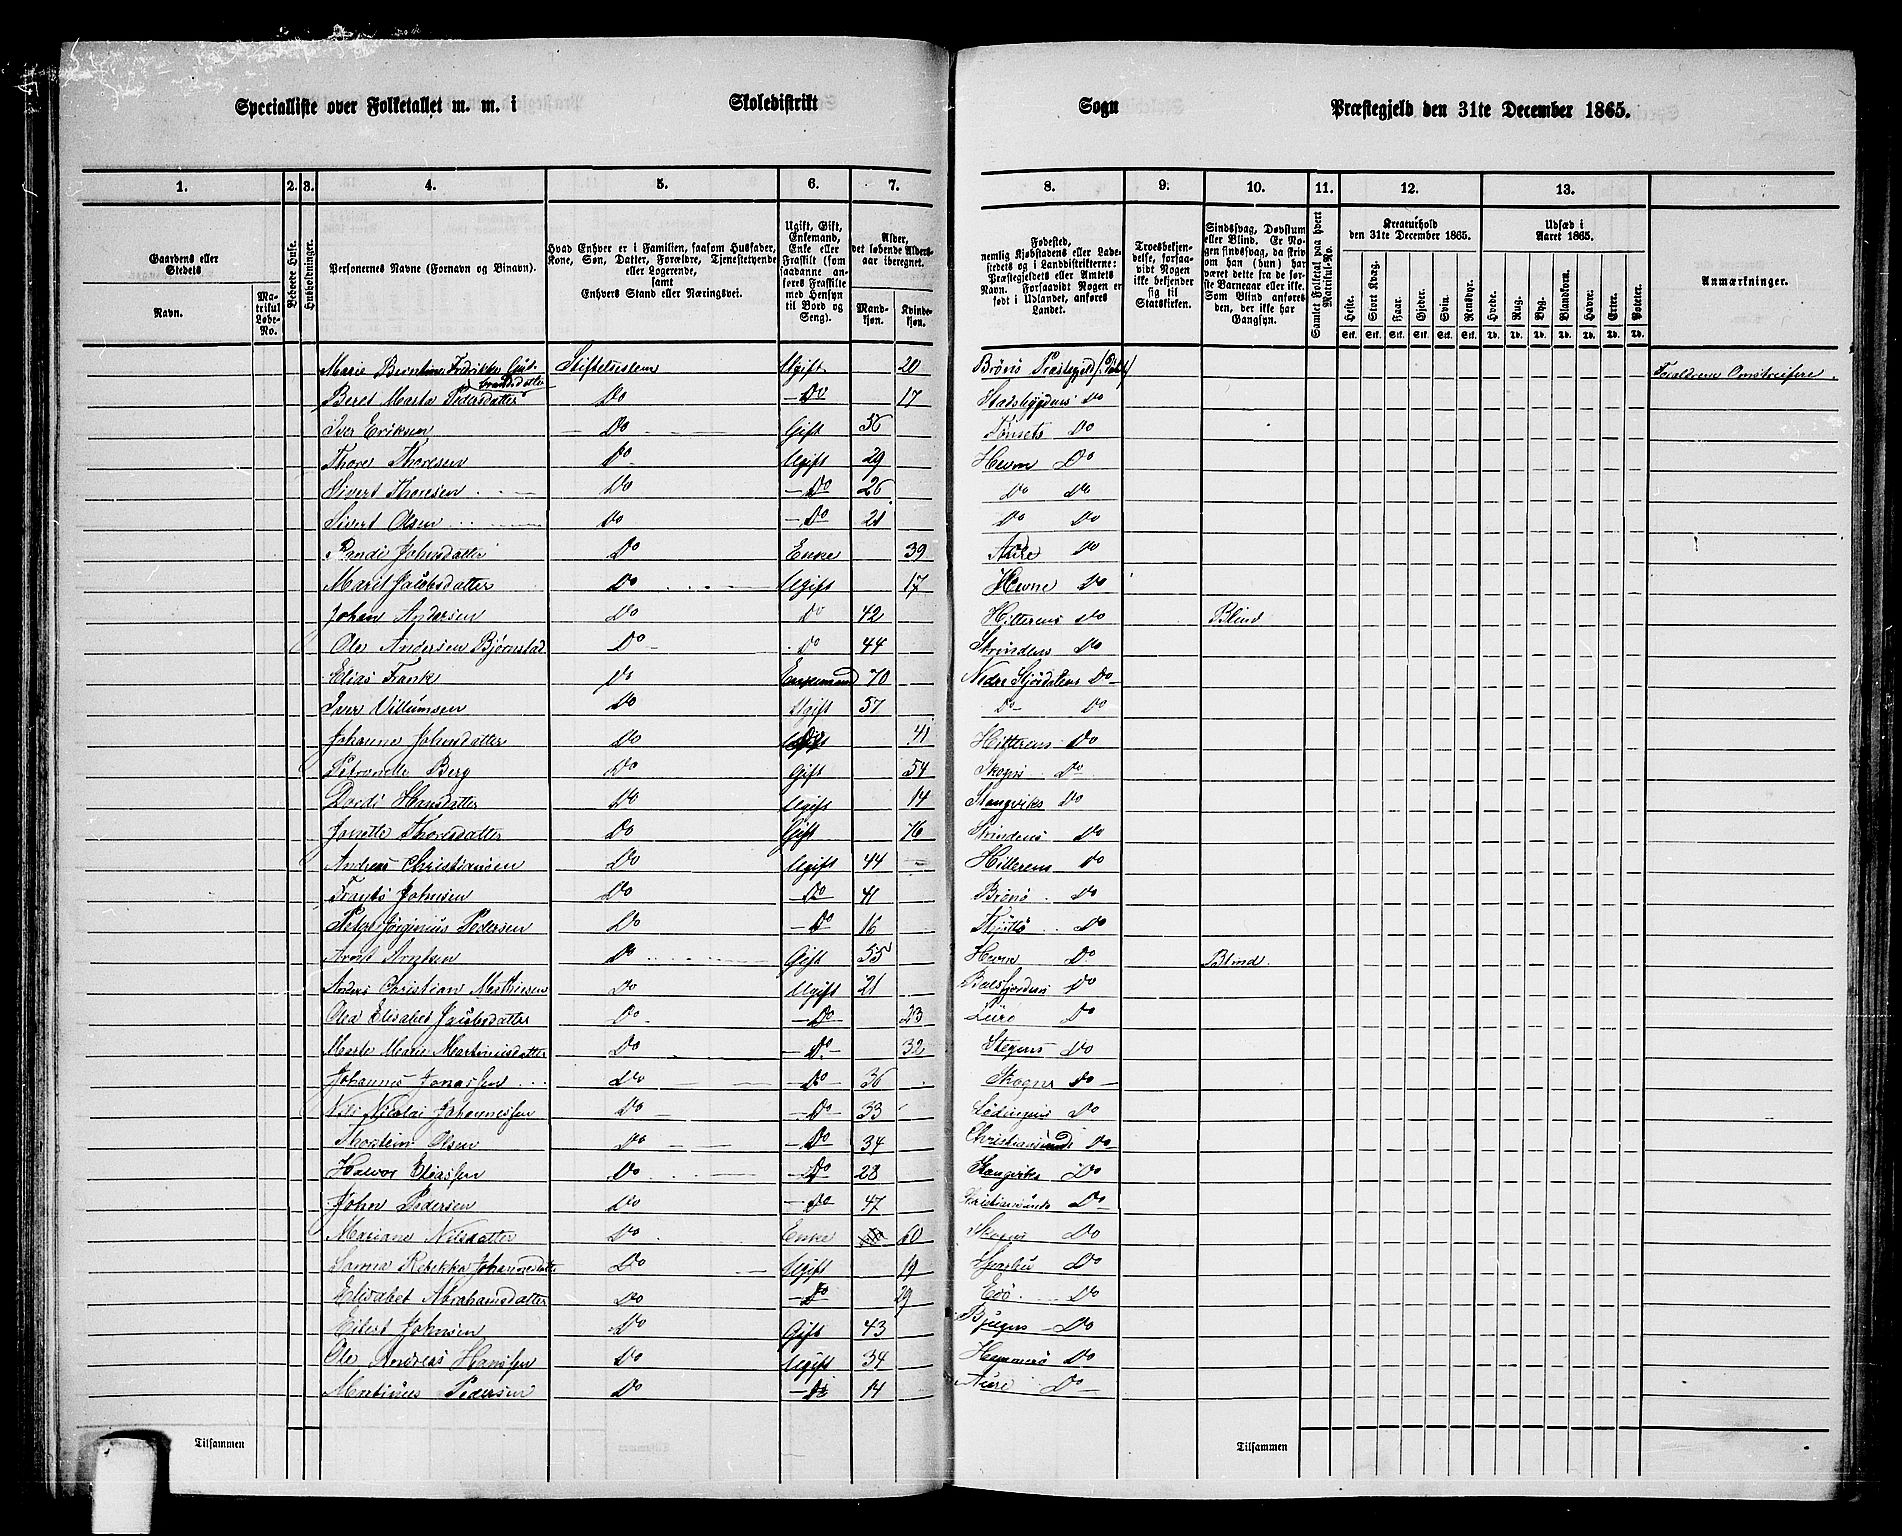 Specialliste over Folketallet m. m. i Skoledistrikt Sogn Præstegjeld den 31te December 1865.
1. 2. 3. 4. 5. 6. 7. 8. 9. 10. 11. 12. 13.
Gaardens eller Stedets
Navn.
Matrikul Løbe-No.
Beboede Huse.
Husholdninger.
Personernes Navne (Fornavn og Binavn).
Hvad Enhver er i Familien, saasom Husfader, Kone, Søn, Datter, Forældre, Tjenestetyende eller Logerende, samt Enhvers Stand eller Næringsvei.
Ugift, Gift, Enkemand, Enke eller Fraskilt (som saadanne anføres Fraskilte med Hensyn til Bord og Seng).
Alder, det løbende Aldersaar iberegnet.
Mandkjøn.
Kvindekjøn.
Fødested, nemlig Kjøbstadens eller Ladestedets og i Landdistrikterne: Præstegjeldets eller Amtets Navn. Forsaavidt Nogen er født i Udlandet, anføres Landet.
Troesbekjendelse, forsaavidt Nogen ikke bekjender sig til Statskirken.
Sindssvag, Døvstum eller Blind. Er Nogen sindssvag, da skrives om han (hun) har været dette fra de første Barneaar eller ikke. Som Blind anføres den, der ikke har Gangsyn.
Samlet Folketal paa hvert Matrikul-No.
Kreaturhold den 31te December 1865.
Heste. Stort Kvæg. Faar. Gjeder. Svin. Rensdyr.
Stk. Stk. Stk. Stk. Stk. Stk.
Udsæd i Aaret 1865.
Hvede. Rug. Byg. Blandkorn. Havre. Erter. Poteter.
Td. Td. Td. Td. Td. Td. Td.
Anmærkninger.
Marie Berntine Fredrikke Gulbrandsdatter Stiftelseslem Ugift 20 Brønø Præstegjeld Forældrene Omstreifere.
Beret Marta Pedersdatter Do Do 17 Stadsbygdens Do
Iver Eriksen Do Gift 56 Tønsets Do
Thore Thoresen Do Ugift 29 Hevne Do
Sivert Thoresen Do Do 26 Do Do
Sivert Olsen Do Do 21 Do Do
Randi Johnsdatter Do Enke 39 Aure Do
Marit Jacobsdatter Do Ugift 17 Hevne Do
Johan Andersen Do Do 42 Hitterens Do Blind
Ole Andersen Bjørnstad Do Do 44 Strindens Do
Elias Frank Do Enkemand 70 Nedre Stjørdalens Do
Iver Villumsen Do Ugift 57 Do Do
Johanne Johnsdatter Do 41 Hitterens Do
Petronelle Berg Do Gift 54 Skogns Do
Dordi Hansdatter Do Ugift 14 Stangviks Do
Jonette Thoresdatter Do Gift 76 Strindens Do
Andreas Christiansen Do Ugift 44 Hitterens Do
Frants Johnsen Do Do 41 Brønø Do
Peter Jørginius Pedersen Do Do 16 Do
Arnt Do Gift 55 Hevne Do Blind.
Anders Christian Mathiesen Do Ugift 21 Balsfjordens Do
Olea Elisabet Jacobsdatter Do Do 23 Lurø Do
Marte Marie Martinusdatter Do Do 32 Stegens Do
Johannes Jonassen Do Do 36 Skogns Do
Nils Nicolai Johannessen Do Do 33 Lødingens Do
Thorstein Olsen Do Do 34 Christiansunds Do
Halvor Eliassen Do Do 28 Stangviks Do
John Pedersen Do Do 47 Christiansunds Do
Mariane Nilsdatter Do Enke 60 Skogns Do
Rebekka Johannesdatter Do Ugift 19 Sparbu Do
Elisabet Abrahamsdatter Do Do 29 Edø Do
Eilert Johnsen Do Gift 43 Bjugns Do
Ole Andreas Hanssen Do Ugift 34 Hammerø Do
Martinus Pedersen Do Do 14 Aure Do
Tilsammen Tilsammen